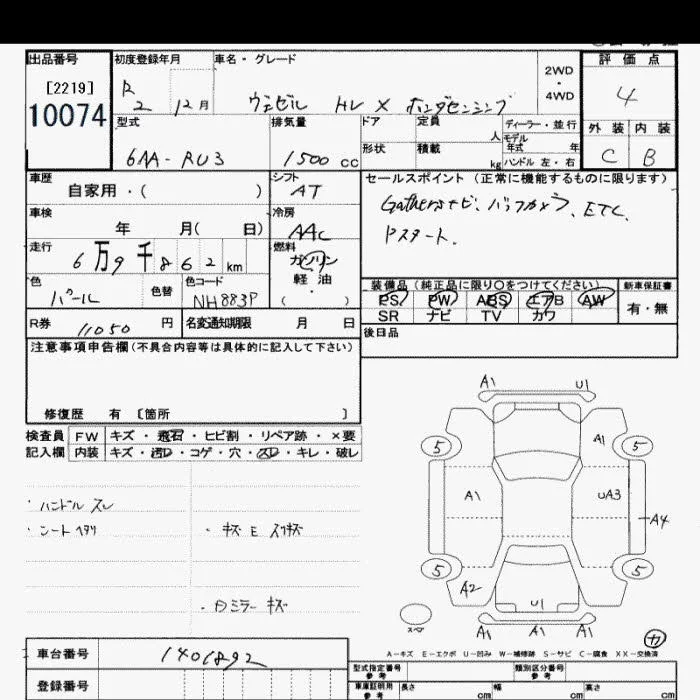 出品番号 初度登録年月 車名・グレード 2WD・4WD 評価点
[2219]
10074
R 2 12月 ヴェゼル HV X ホンダセンシング 4
型式 排気量 ドア 定員 人 ディーラー・並行 外装 内装
モデル年式 年
6AA-RU3 1500cc 形状 積載 kg ハンドル 左・右 C B
車歴 シフト セールスポイント(正常に機能するものに限ります)
自家用・( ) AT Gathersナビ、バックカメラ、ETC、
車検 冷房 Pスタート、
年 月( 日) AAC
走行 燃料
6万9千862km ガソリン
軽油
・
( )
色 色替 色コード 装備品(純正品に限り○をつけてください) 新車保証書
パール NH883P PS PW ABS エアB AW 有・無
SR ナビ TV カワ
R券 11050円 名変通知期限 月 日 後日品
注意事項申告欄(不具合内容等は具体的に記入して下さい)
修復歴 有 〔箇所 〕
検査員 FW キズ・飛石・ヒビ割・リペア跡・×要
記入欄 内装 キズ・汚れ・コゲ・穴・スレ・キレ・破レ
・ハンドル スレ
・シート ヘタリ ・キズ E スリキズ
・日ミラー キズ
A1 U1
5 A1 5
A1 UA3 A4
5 5
A2 U1
スペア A1 A1 A1 カ
A-キズ E-エクボ U-凹み W-補修跡 S-サビ C-腐食 XX-交換済
車台番号 1401892
型式指定番号 参考 類別区分番号 参考
登録番号 車庫証明用 参考 長さ cm 幅 cm 高さ cm